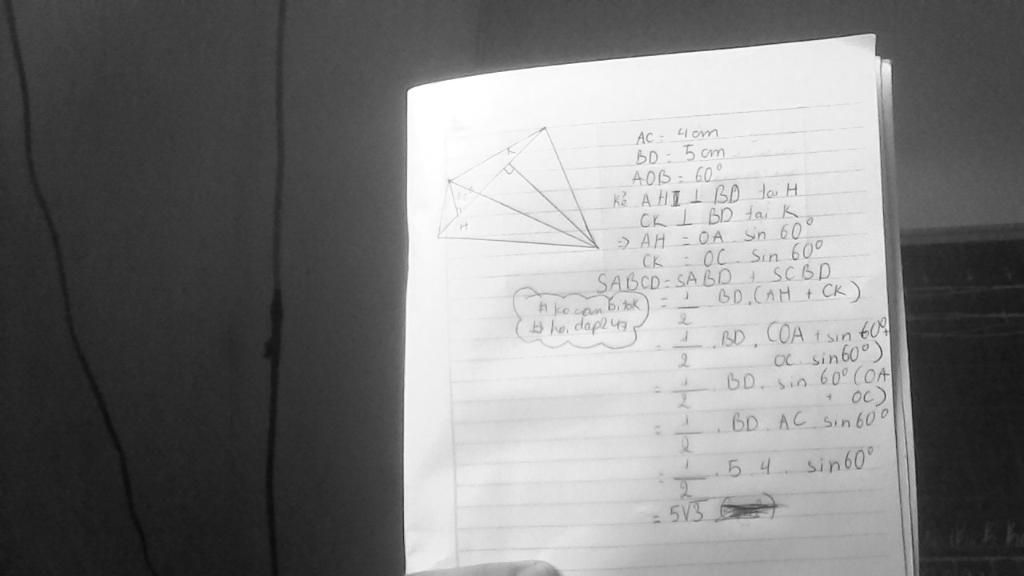 AC = 4cm
BD = 5cm
AOB = 60°
Kẻ AH ⊥ BD tại H
CK ⊥ BD tại K
⇒ AH = OA . sin 60°
CK = OC . sin 60°
SABCD = SABD + SCBD
= 1/2 BD.(AH + CK)
= 1/2 . BD . (OA + sin 60° + OC . sin60°)
= 1/2 . BD . sin 60° (OA + OC)
= 1/2 . BD . AC . sin60°
= 1/2 . 5 . 4 . sin60°
= 5√3
K
H
# ko cần
# hoidap247